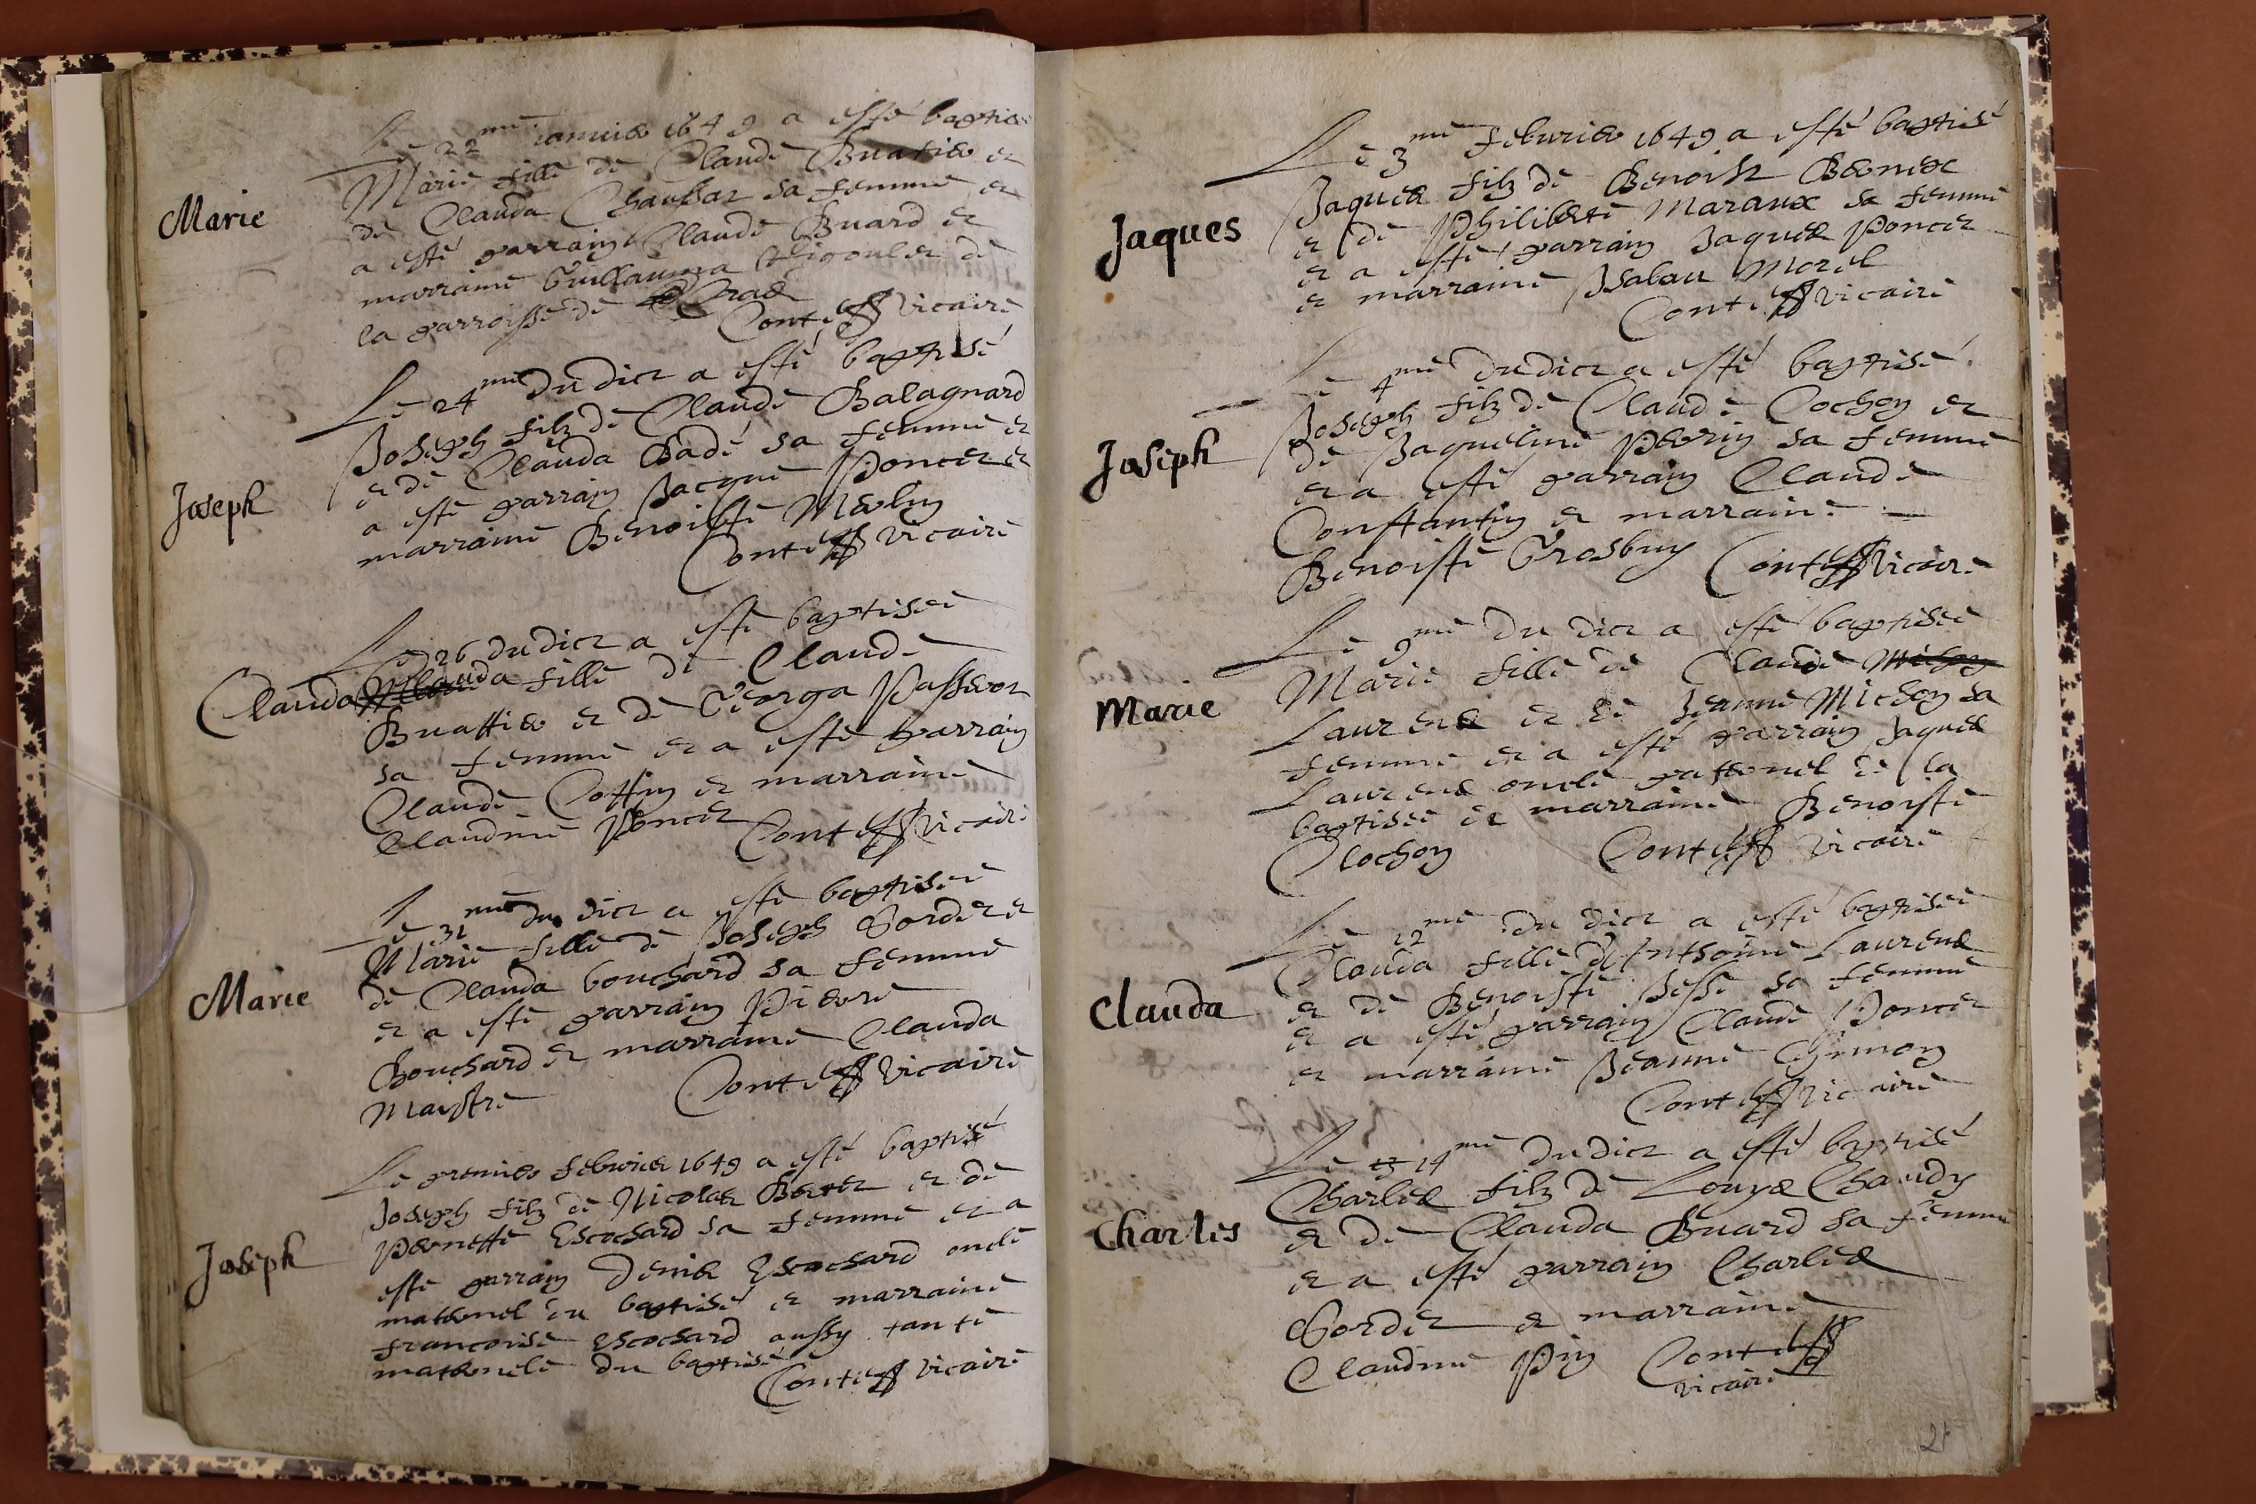 Marie
Le 22me Januier 1649 a esté baptisée
Marie fille de Claude Buatier et
de Clauda Chambar sa femme et
a esté parrain Claude Buard et
marraine Guillauma de
la parroisse de
Conte vicaire
Joseph
Le 24me dudict a esté baptisé
Joseph filz de Claude Balagnard
et de Clauda Badé sa femme et
a esté parrain Jacque Poncet et
marraine Benoiste Merlin
Conte vicaire
Clauda
Le 26 dudict a esté baptisée
Clauda fille de Claude
Buattier et de Georga Passerot
sa femme et a esté parrain
Claude Cottin et marraine
Claudine Poncet Conte vicaire
Marie
Le 31me du dict a esté baptisée
Marie fille de Joseph Sordet et
de Clauda bouchard sa femme
et a esté parrain Pierre
Bouchard et marraine Clauda
Maistre Conte vicaire
Joseph
Le premier febvrier 1649 a esté baptisé
Joseph filz de Nicolas Berret et de
Pernette Escochard sa femme et a
esté parrain Denis Escochard oncle
maternel du baptisé et marraine
francoise Escochard aussy tante
maternele du baptisé
Conte vicaire
Jaques
Le 3me febvrier 1649 a esté baptisé
Jaques filz de Benoist Bernex
et de Philiberte Maraux sa femme
et a esté parrain Jaques Poncet
et marraine Isabau Morel
Conte vicaire
Joseph
Le 4me dudict a esté baptisé
Joseph filz de Claude Cochon et
de Jaqueline Perrin sa femme
et a esté parrain Claude
Constantin et marraine
Benoiste Grosbuy Conte vicaire
Marie
Le 9me du dict a esté baptisée
Marie fille de Claude Michon
Laurens et de Jeanne Michon sa
femme et a esté parrain Jaques
Laurens oncle paternel de la
baptisée et marraine Benoiste
Clochon Conte vicaire
Clauda
Le 12me du dict a esté baptisée
Clauda fille d'Anthoine Laurens
et de Benoiste Besse sa femme
et a esté parrain Claude Poncet
et marraine Jeanne
Conte vicaire
Charles
Le 13 14me dudict a esté baptisé
Charles filz de Louys Chaudy
et de Clauda Buard sa femme
et a esté parrain Charles
Sordet et marraine
Claudine Pin Conte
vicaire
21